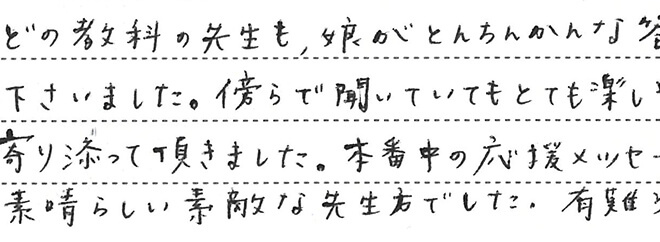 どの教科の先生も,娘がとんちんかんな答
下さいました。傍らで聞いていてもとても楽し
寄り添って頂きました。本番中の応援メッセー
素晴らしい素敵な先生方でした。有難